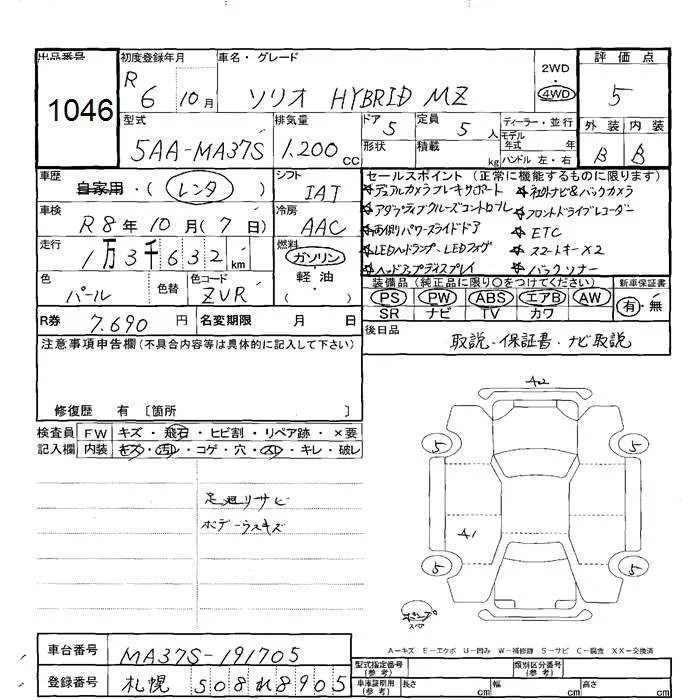 出品番号 初度登録年月 車名・グレード 評価点
1046 R 6 10月 ソリオ HYBRID MZ 2WD・4WD 5
型式 排気量 ドア 5 定員 5 人 ディーラー・並行 外装 内装
5AA-MA37S 1.200 CC 形状 積載 kg モデル年式 年 B B
ハンドル 左・右
車歴 自家用・(レンタ) シフト IAT セールスポイント (正常に機能するものに限ります)
☆デュアルカメラブレーキサポート ☆社外ナビ&バックカメラ
車検 R8年10月(7日) 冷房 AAC ☆アダプティブクルーズコントロール ☆フロントドライブレコーダー
☆両側パワースライドドア ☆ETC
走行 1万3千632km 燃料 ガソリン・軽油・( ) ☆LEDヘッドランプ、LEDフォグ ☆スマートキー×2
☆ヘッドアップディスプレイ ☆バックソナー
色 パール 色替 色コード ZVR 装備品(純正品に限り○をつけてください) 新車保証書
PS PW ABS エアB AW 有・無
SR ナビ TV カワ
R券 7.690円 名変期限 月 日 後日品 取説・保証書・ナビ取説
注意事項申告欄(不具合内容等は具体的に記入して下さい)
修復歴 有〔箇所 〕
検査員 FW キズ・飛石・ヒビ割・リペア跡・×要
記入欄 内装 キズ・汚レ・コゲ・穴・スレ・キレ・破レ
足廻リサビ
ボデーウスキズ
A2
5 5
A1
5 5
スペア
A-キズ E-エクボ U-凹み W-補修跡 S-サビ C-腐食 XX-交換済
車台番号 MA37S-191705 型式指定番号(参考) 類別区分番号(参考)
登録番号 札幌 508れ8905 車庫証明用(参考) 長さ cm 幅 cm 高さ cm